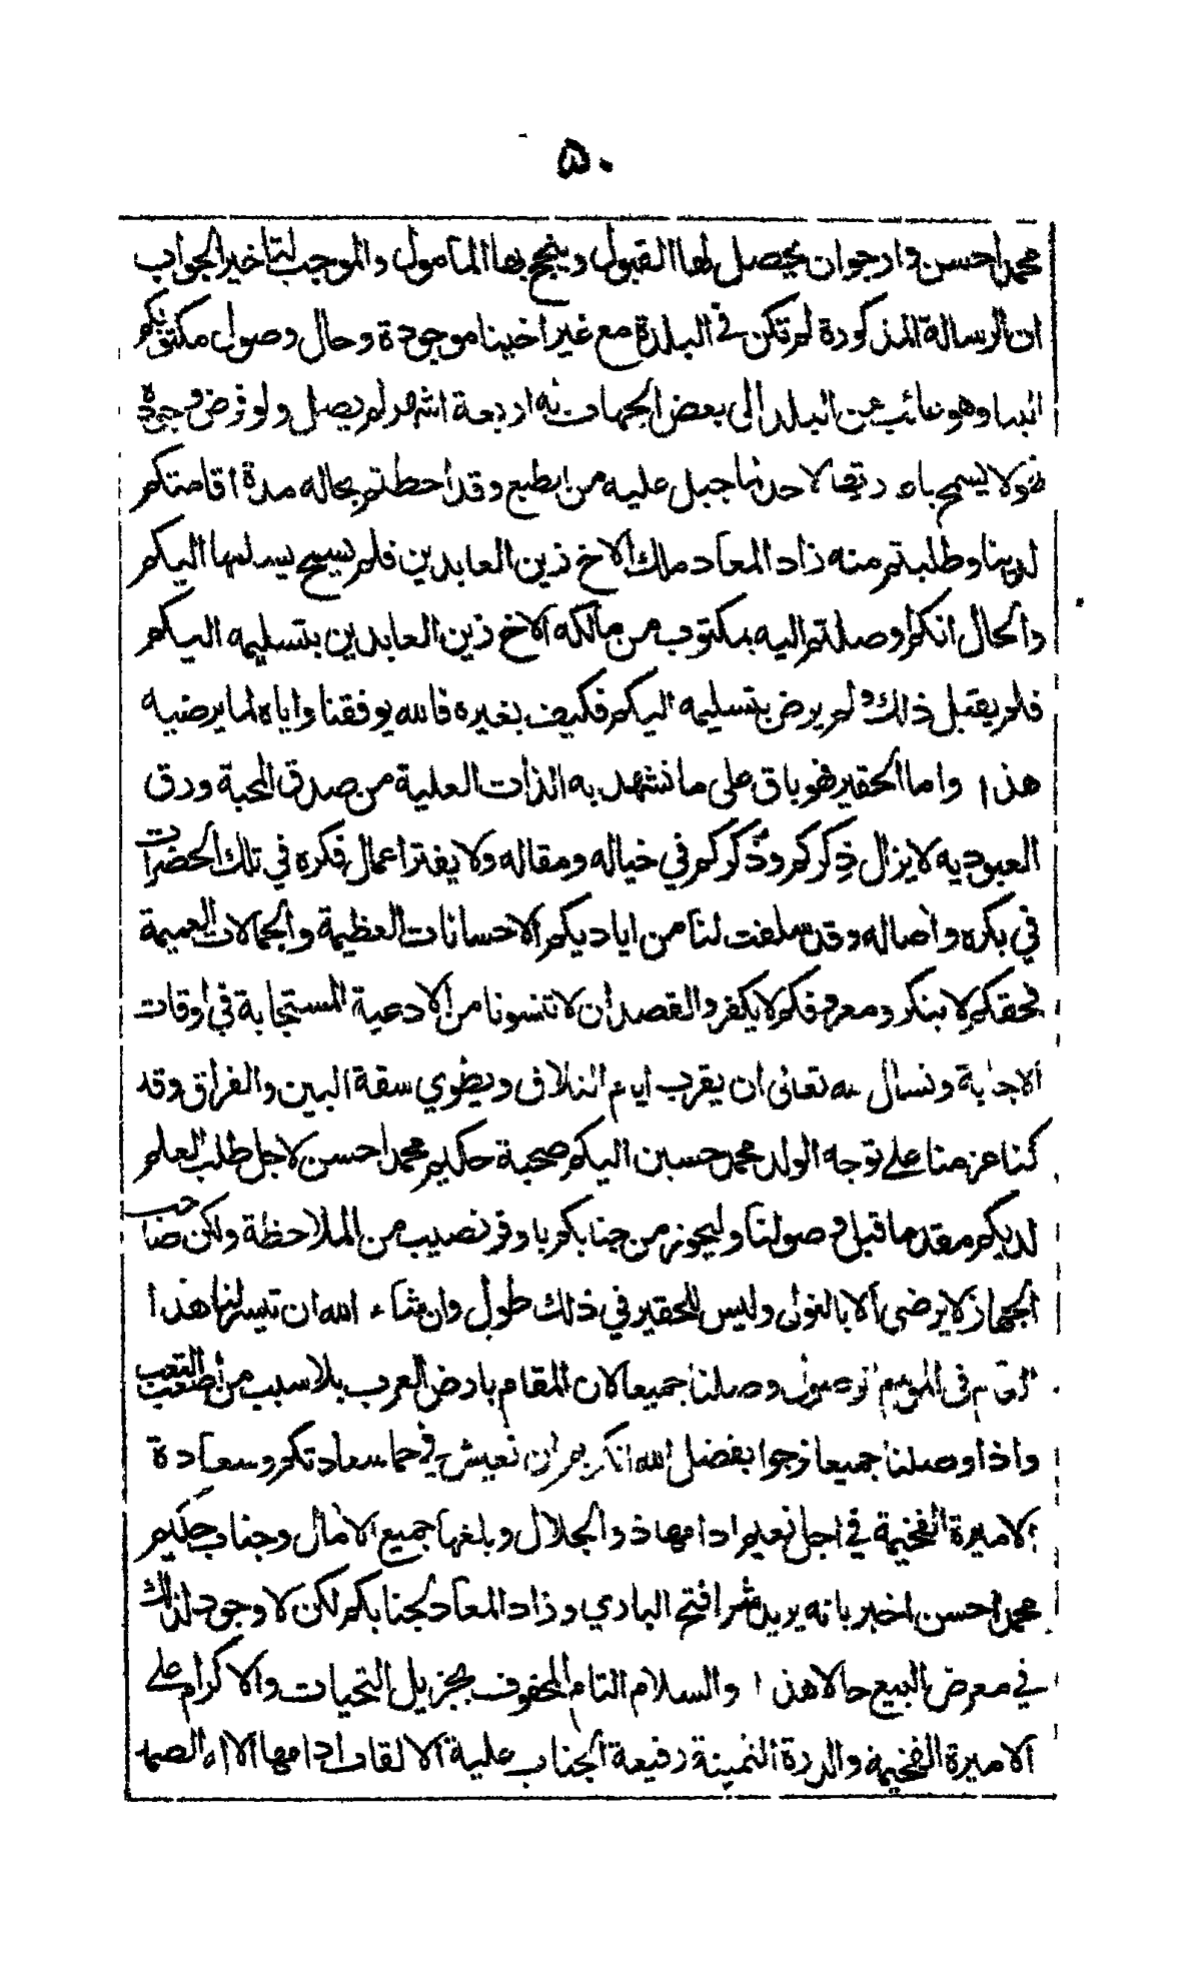 ٥٠
محمد احسن وارجوان يحصل لها القبول وينجح بها المأمول والموجب لتاخير الجواب
ان الرسالة المذكورة لم تكن في البلدة مع غير اخينا موجودة وحال وصول مكتوبكم
الينا وهو غائب عن البلد الى بعض الجهات له اربعة اشهر لم يصل ولو فرض وجوده
فهو لا يسمح باء رتها لاحد لما جبل عليه من الطبع وقد احطتم بحاله مدة اقامتكم
لدينا وطلبتم منه زاد المعاد ملك الاخ زين العابدين فلم يسمح يسلمها اليكم
والحال انكم اوصلتم اليه بمكتوب من مالكه الاخ زين العابدين بتسليمه اليكم
فلم يقبل ذلك ولم يرض بتسليمه اليكم فكيف بغيره فالله يوفقنا واياه لما يرضيه
هذا واما الحقير فهو باق على ما تشهد به الذات العلية من صدق المحبة ورق
العبوديه لا يزال ذِكركم وذُكركم في خياله ومقاله ولا يفتر اعمال فكره في تلك الحضرات
في بكره واصاله وقد سلفت لنا من اياديكم الاحسانات العظيمة والجمالات العميمة
فحقكم لا ينكر ومعروفكم لا يكفر والقصد ان لا تنسونا من الادعية المستجابة في اوقات
الاجابة ونسال الله تعالى ان يقرب ايام التلاق ويطوي سقة البين والفراق وقد
كنا عزمنا على توجه الولد محمد حسين اليكم صحبة حكيم محمد احسن لاجل طلب العلم
لديكم مقدما قبل وصولنا وليحوز من جنابكم باوفر نصيب من الملاحظة ولكن صاحب
الجهاز لا يرضى الا بالنولى وليس للحقير في ذلك طول وان شاء الله ان تيسر لنا هذا
العام في الموسم الوصول وصلنا جميعا لان المقام بارض العرب بلا سبب من اصعب التعب
واذا وصلنا جميعا نرجوا بفضل الله الكريم ان نعيش في حما سعادتكم وسعادة
الاميرة الفخيمة في اجل نعيم ادامها ذو الجلال وبلغها جميع الامال وجناب حكيم
محمد احسن اخبر بانه يريد شرا فتح الباري وزاد المعاد لجنابكم لكن لا وجود لذلك
في معرض البيع حالا هذا والسلام التام المحفوف بجزيل التحيات والاكرام على
الاميرة الفخيمة والدرة الثمينة رفيعة الجناب علية الالقاب ادامها الاله الصمد